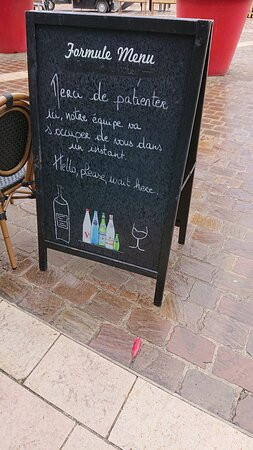 Formule Menu
Merci de patienter
ici, notre équipe va
s'occuper de vous dans
un instant.
Hello, please, wait here.